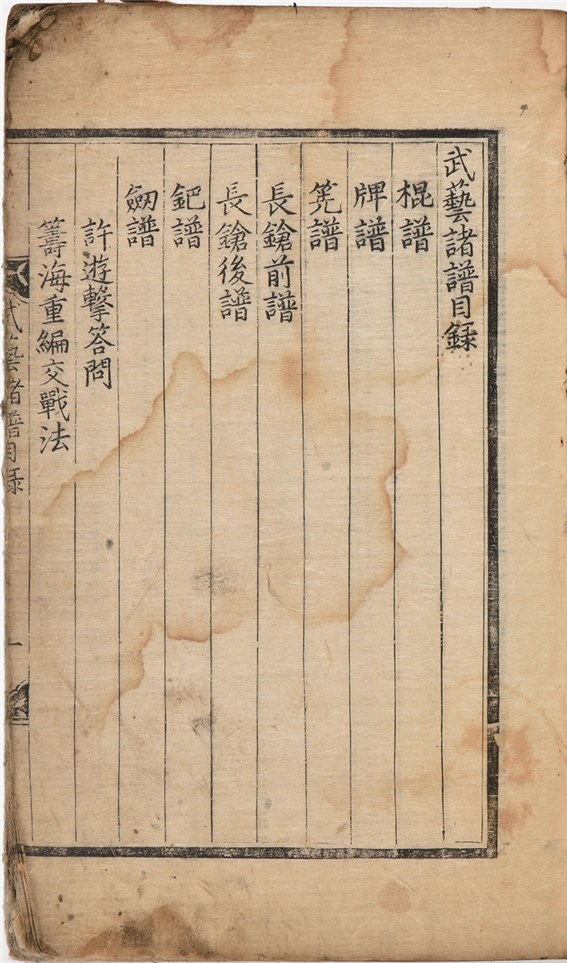 武藝諸譜目錄
棍譜
牌譜
筅譜
長鎗前譜
長鎗後譜
鈀譜
劒譜
許遊擊答問
籌海重編交戰法
武藝諸譜目錄
一